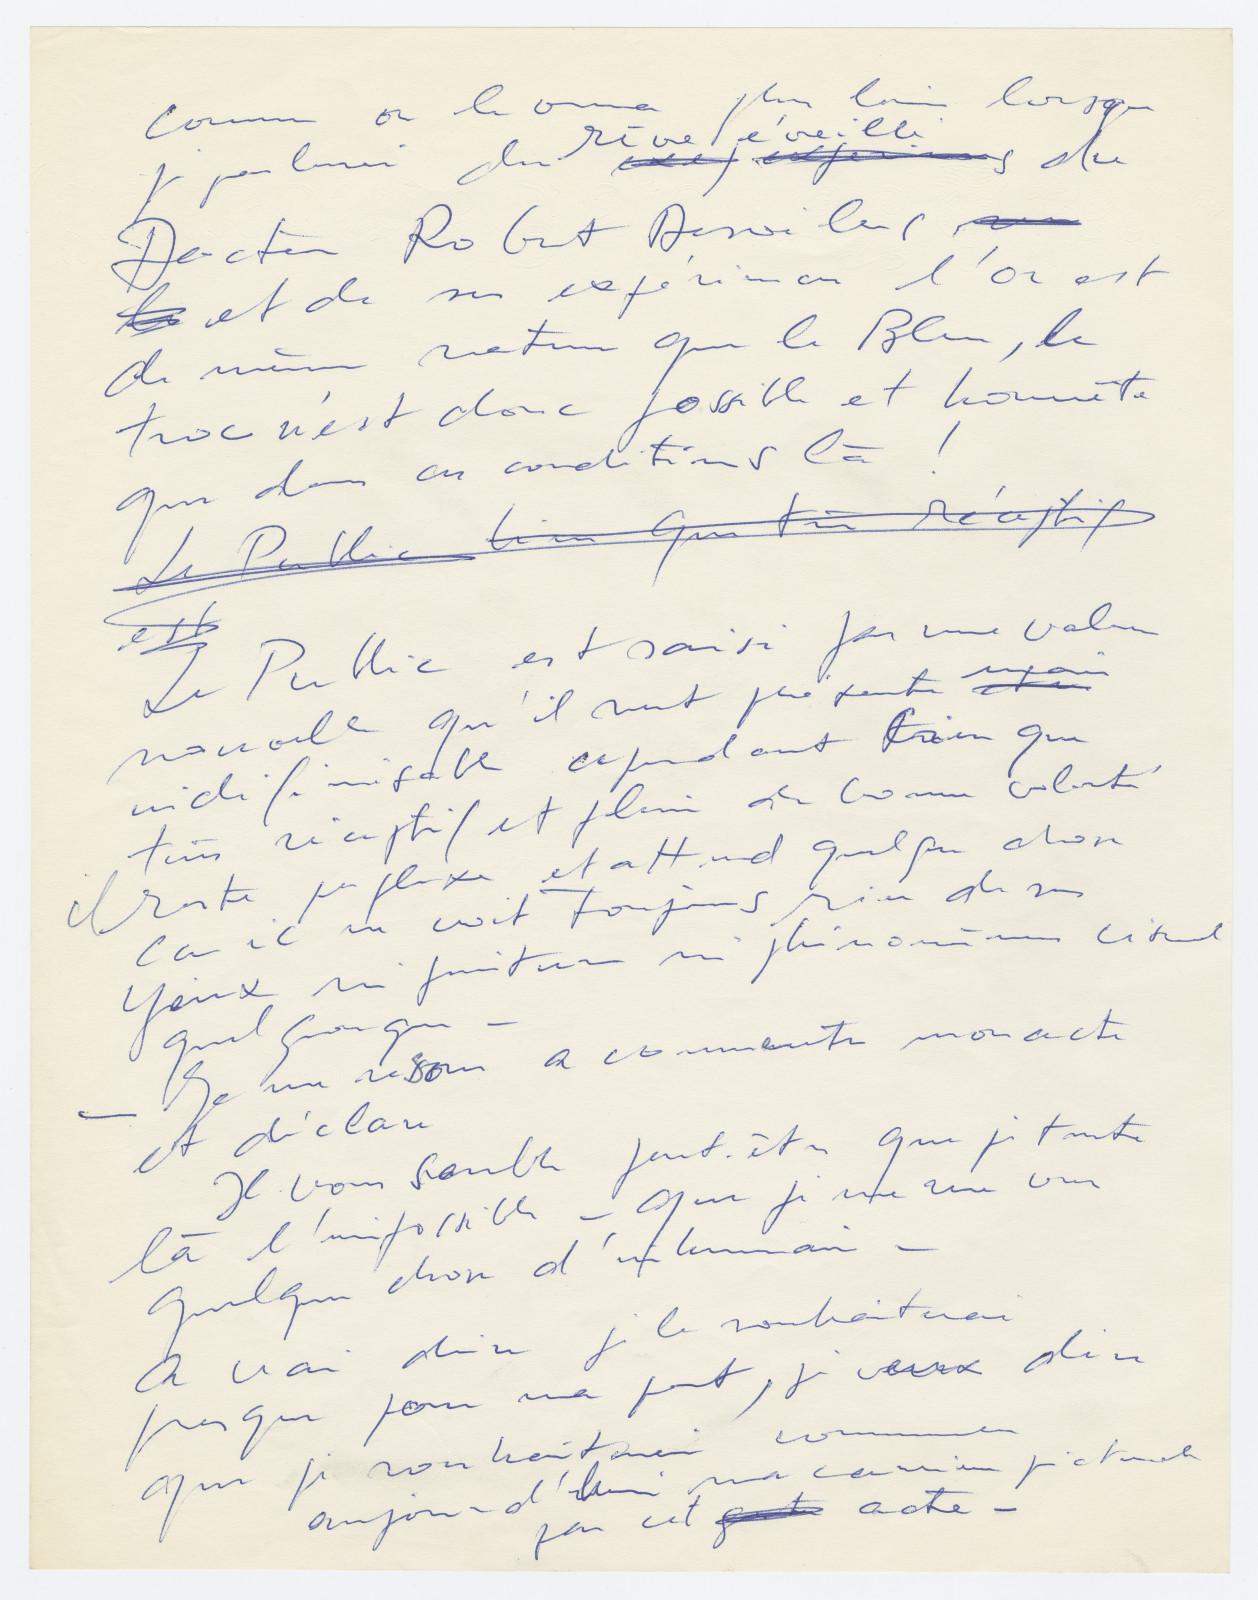 comme on le verra plus loin lorsque
je parlerai du rêve éveillé du
Docteur Robert Desoilles,
et de ses expériences l'Or est
de même nature que le Bleu, le
troc n'est donc possible et honnête
que dans ces conditions là !
Le Public bien que très réceptif
est
Le Public est saisi par une valeur
nouvelle qu'il sent présente
indéfinissable cependant bien que
très réceptif et plein de bonne volonté
il reste perplexe et attend quelque chose
car il ne voit toujours rien de ses
yeux ni peinture ni phénomènes visuel
quelconque –
– Je me résous a commenter mon acte
et déclare
Il vous semble peut-être que je tente
là l'impossible – que je me rue vers
quelque chose d'inhumain –
A vrai dire je le souhaiterai
presque pour ma part, je veux dire
que je souhaiterai commencer
aujourd'hui ma carrière picturale
par cet geste acte –